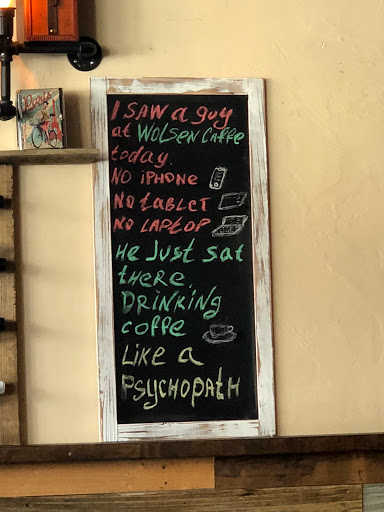 Paris
I SAW a guy
at WOLSEN Caffe
today.
NO iPHONE
NO tABLET
NO LAPTOP
He Just sat
tHERE,
DRiNKiNG
coffe
LiKe a
PSYCHOPAtH